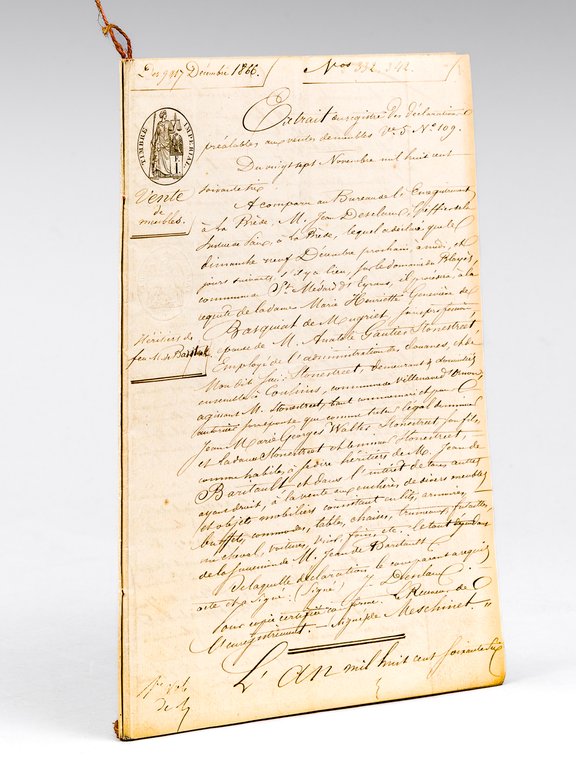 Des 9 & 17 Décembre 1866.
Nos 332. 342.
TIMBRE IMPÉRIAL
Vente
de
meubles.
Héritiers de
feu M. de Baritault
Extrait du registre des déclarations
préalables aux ventes de meubles Vol. 5 No 109.
Du vingt sept Novembre mil huit cent
soixante six
A comparu au Bureau de l'Enregistrement
à la Brède, M. Jean Desclaux, Greffier de la
Justice de Paix, à la Brède, lequel a déclaré que le
dimanche neuf Décembre prochain, à midi, et
jours suivants, s'il y a lieu, sur le domaine du
commune St Médard d'Eyrans, il procèdera, à la
requête de la dame Marie Henriette Geneviève de
Basquiat de Mugriet, sans profession,
épouse de M. Anatole Gautier Stonestreet
Employé de l'administration des douanes, et de
Mon dit Sieur Stonestreet, demeurant & domiciliés
ensemble à commune de Villenave d'Ornon
agissant M. Stonestreet, tant
autoriser son épouse que comme tuteur légal de mineur
Jean Marie Georges Stonestreet son fils,
et la dame Stonestreet et le mineur Stonestreet,
comme habiles à se dire héritiers de M. Jean de
Baritault et dans l'intérêt de tous autres
ayant droit, à la vente aux enchères, de divers meubles
et objets mobiliers consistant en lits, armoires,
buffets, commodes, tables, chaises, futailles,
un cheval, voitures, vins, foins, etc. le tout dépendant
de la succession de M. Jean de Baritault
De laquelle déclaration le comparant a requis
acte et a signé. (Signé) J. Desclaux.
Pour copie certifiée conforme. Le Receveur de
l'Enregistrement. Signé de Meschinet "
L'an mil huit cent soixante six